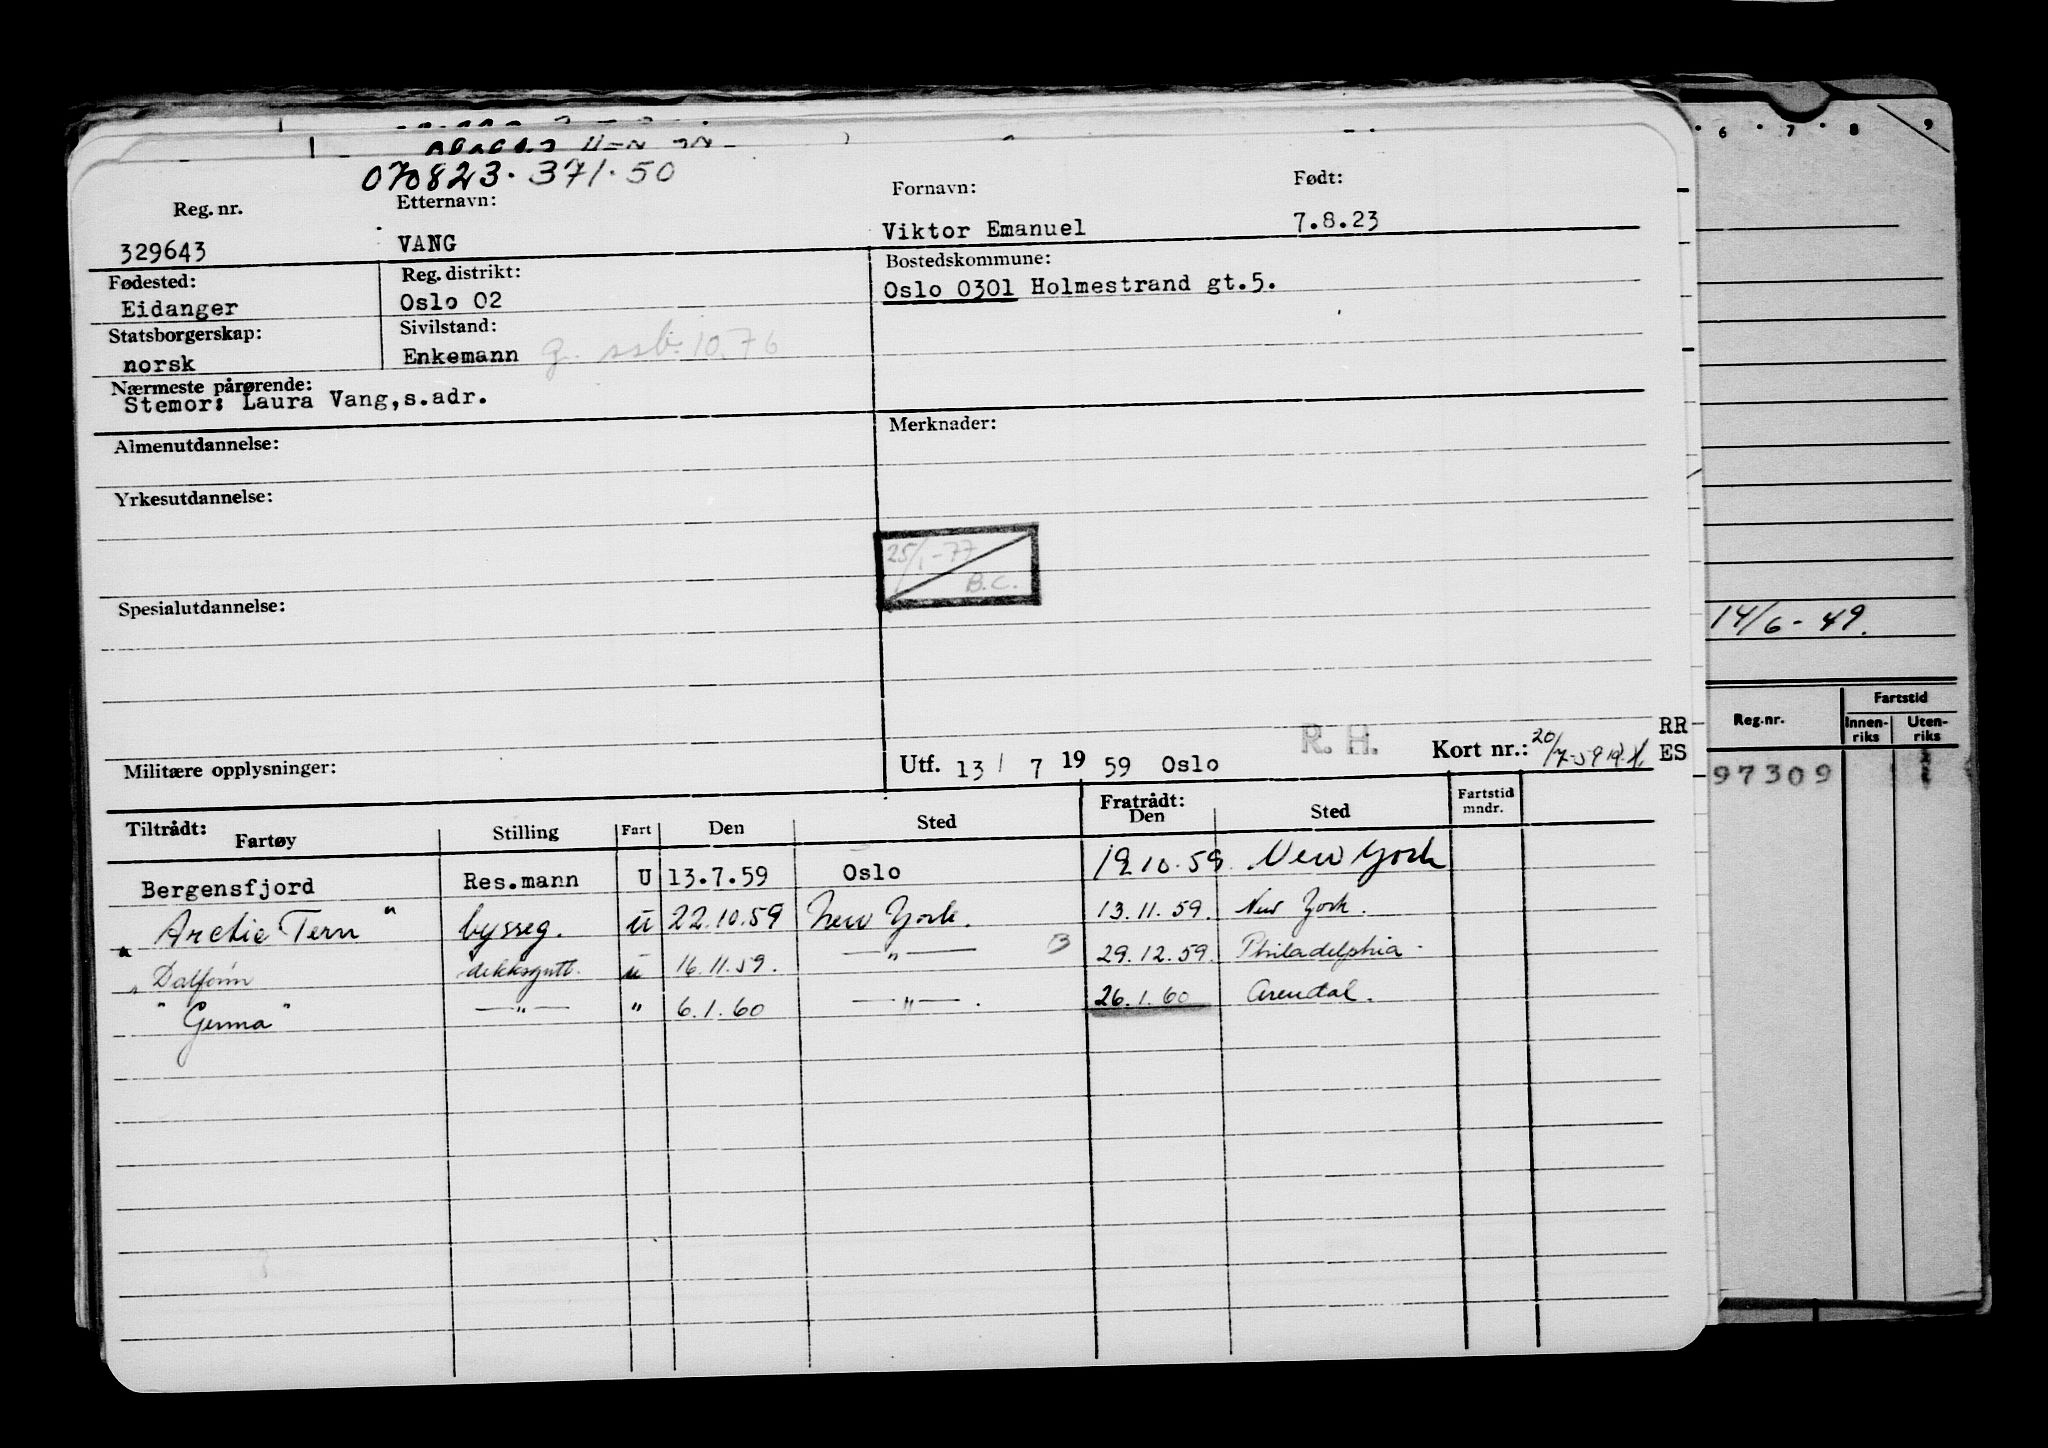 070823.371.50
Reg. nr. Etternavn: Fornavn: Født:
329643 VANG Viktor Emanuel 7.8.23
Fødested: Reg. distrikt: Bostedskommune:
Eidanger Oslo 02 Oslo 0301 Holmestrand gt.5.
Statsborgerskap: Sivilstand:
norsk Enkemann g. ssb. 10.76
Nærmeste pårørende:
Stemor: Laura Vang,s.adr.
Almenutdannelse: Merknader:
Yrkesutdannelse:
25/1-77
B.C.
Spesialutdannelse:
Militære opplysninger: Utf. 13/ 7 19 59 Oslo R. H. Kort nr.: 20/7-59 RR
ES
Tiltrådt: Fratrådt:
Fartøy Stilling Fart Den Sted Den Sted Fartstid mndr.
Bergensfjord Res.mann U 13.7.59 Oslo 19.10.59 New York
" Arctic Tern " bysseg. u 22.10.59 New York. 13.11.59. New York.
" Dalfonn dekksgutt. u 16.11.59. —"— B 29.12.59. Philadelphia
" Gerina " —"— " 6.1.60 —"—. 26.1.60 Arendal.
6 . 7 . 8 9
14/6-49.
Fartstid
Reg.nr. Innen-riks Uten-riks
97309